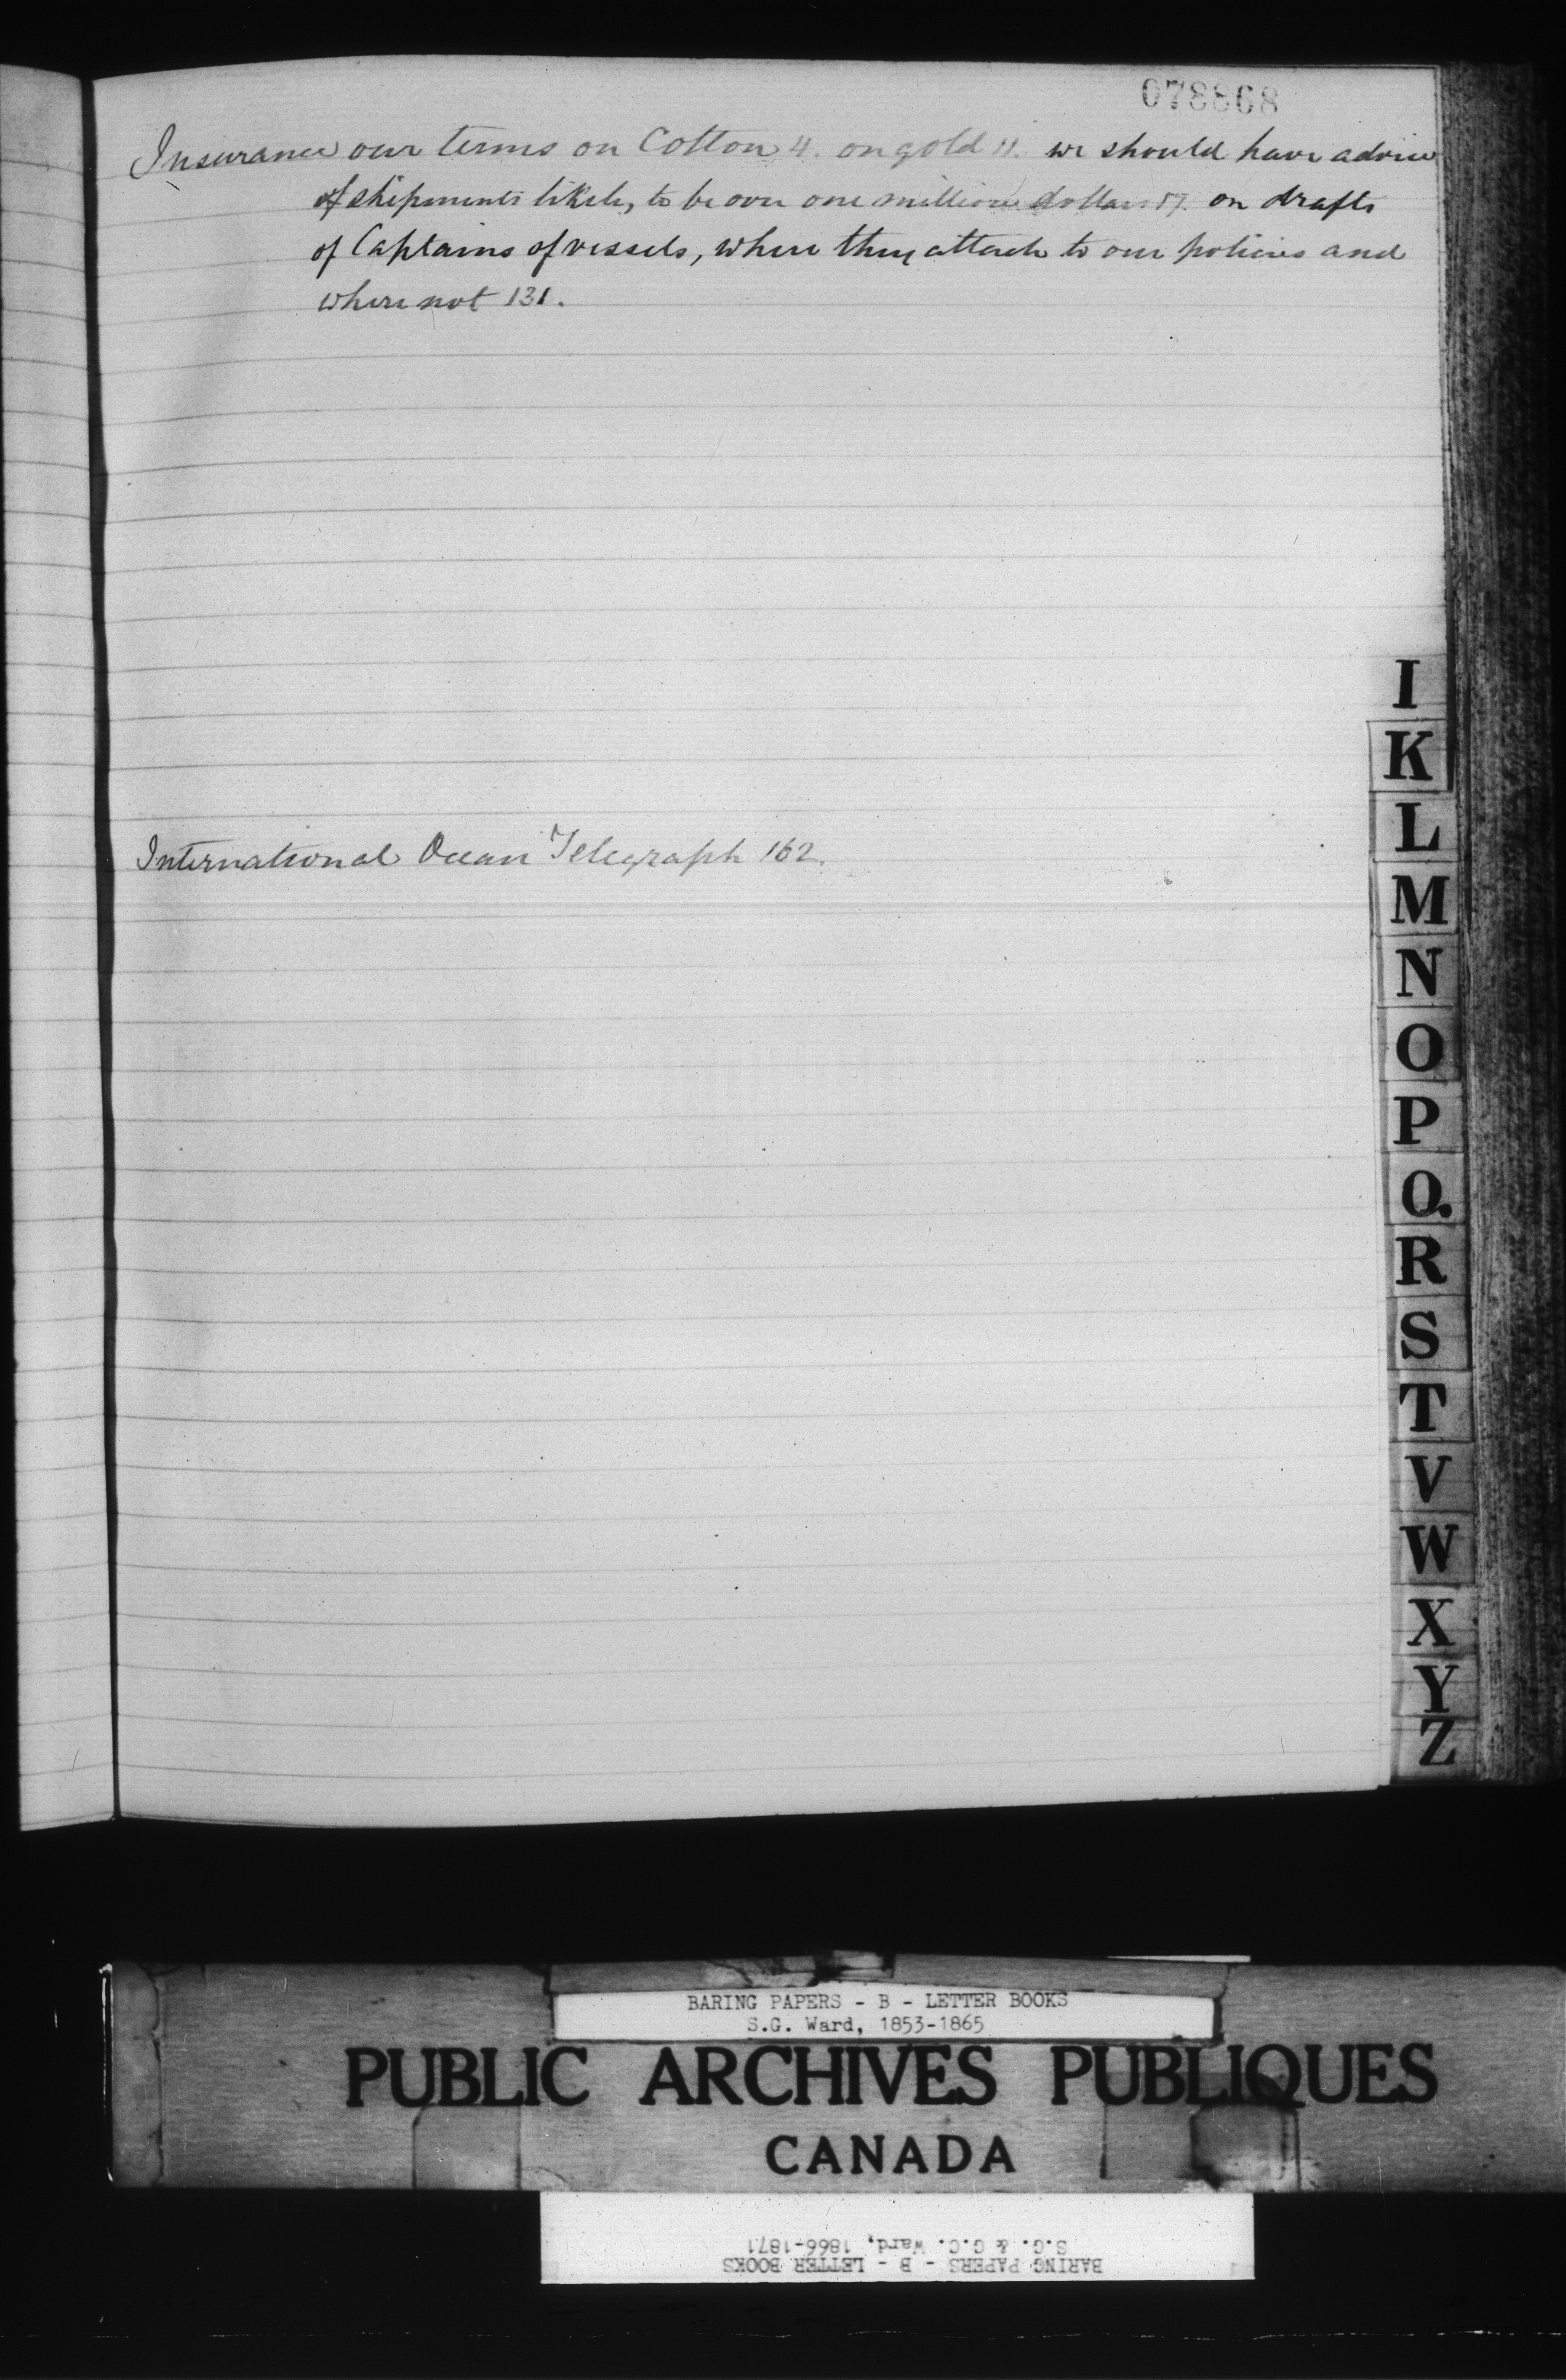 073368
Insurance our terms on Cotton 4. on gold 11. we should have advice
of shipments likely to be over one million dollars 57. on drafts
of Captains of vessels, where they attach to our policies and
where not 131.
International Ocean Telegraph 162.
I
K
L
M
N
O
P
Q.
R
S
T
V
W
X
Y
Z
BARING PAPERS - B - LETTER BOOKS
S.G. Ward, 1853-1865
PUBLIC ARCHIVES PUBLIQUES
CANADA
BARING PAPERS - B - LETTER BOOKS
S.G. & G.C. Ward, 1866-1871